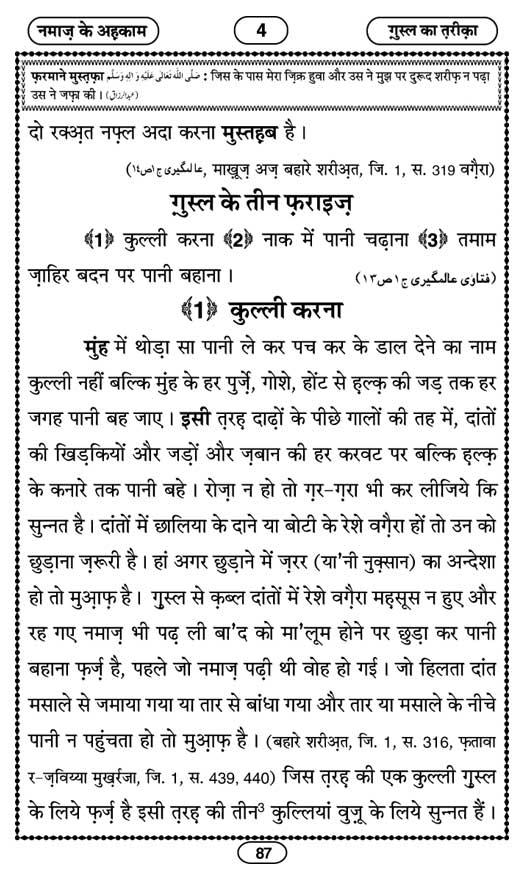 नमाज़ के अह़काम
4
ग़ुस्ल का त़रीक़ा
फ़रमाने मुस्त़फ़ा صَلَّى اللهُ تَعَالٰى عَلَيْهِ وَاٰلِهٖ وَسَلَّم : जिस के पास मेरा ज़िक्र हुवा और उस ने मुझ पर दुरूद शरीफ़ न पढ़ा
उस ने जफ़ा की। (عبدالرزاق)
दो रक्अ़त नफ़्ल अदा करना मुस्तह़ब है।
(عالمگیری ج۱ص۱٤, माख़ूज़ अज़ बहारे शरीअ़त, जि. 1, स. 319 वग़ैरा)
ग़ुस्ल के तीन फ़राइज़
﴾1﴿ कुल्ली करना ﴾2﴿ नाक में पानी चढ़ाना ﴾3﴿ तमाम
ज़ाहिर बदन पर पानी बहाना। (فتاوٰی عالمگیری ج۱ص۱۳)
﴾1﴿ कुल्ली करना
मुंह में थोड़ा सा पानी ले कर पच कर के डाल देने का नाम
कुल्ली नहीं बल्कि मुंह के हर पुर्ज़े, गोशे, होंट से ह़ल्क़ की जड़ तक हर
जगह पानी बह जाए। इसी त़रह़ दाढ़ों के पीछे गालों की तह में, दांतों
की खिड़कियों और जड़ों और ज़बान की हर करवट पर बल्कि ह़ल्क़
के कनारे तक पानी बहे। रोज़ा न हो तो ग़र-ग़रा भी कर लीजिये कि
सुन्नत है। दांतों में छालिया के दाने या बोटी के रेशे वग़ैरा हों तो उन को
छुड़ाना ज़रूरी है। हां अगर छुड़ाने में ज़रर (या'नी नुक़्सान) का अन्देशा
हो तो मुआ़फ़ है। ग़ुस्ल से क़ब्ल दांतों में रेशे वग़ैरा मह़सूस न हुए और
रह गए नमाज़ भी पढ़ ली बा'द को मा'लूम होने पर छुड़ा कर पानी
बहाना फ़र्ज़ है, पहले जो नमाज़ पढ़ी थी वोह हो गई। जो हिलता दांत
मसाले से जमाया गया या तार से बांधा गया और तार या मसाले के नीचे
पानी न पहुंचता हो तो मुआ़फ़ है। (बहारे शरीअ़त, जि. 1, स. 316, फ़तावा
र-ज़विय्या मुख़र्रजा, जि. 1, स. 439, 440) जिस त़रह़ की एक कुल्ली ग़ुस्ल
के लिये फ़र्ज़ है इसी त़रह़ की तीन³ कुल्लियां वुज़ू के लिये सुन्नत हैं।
87